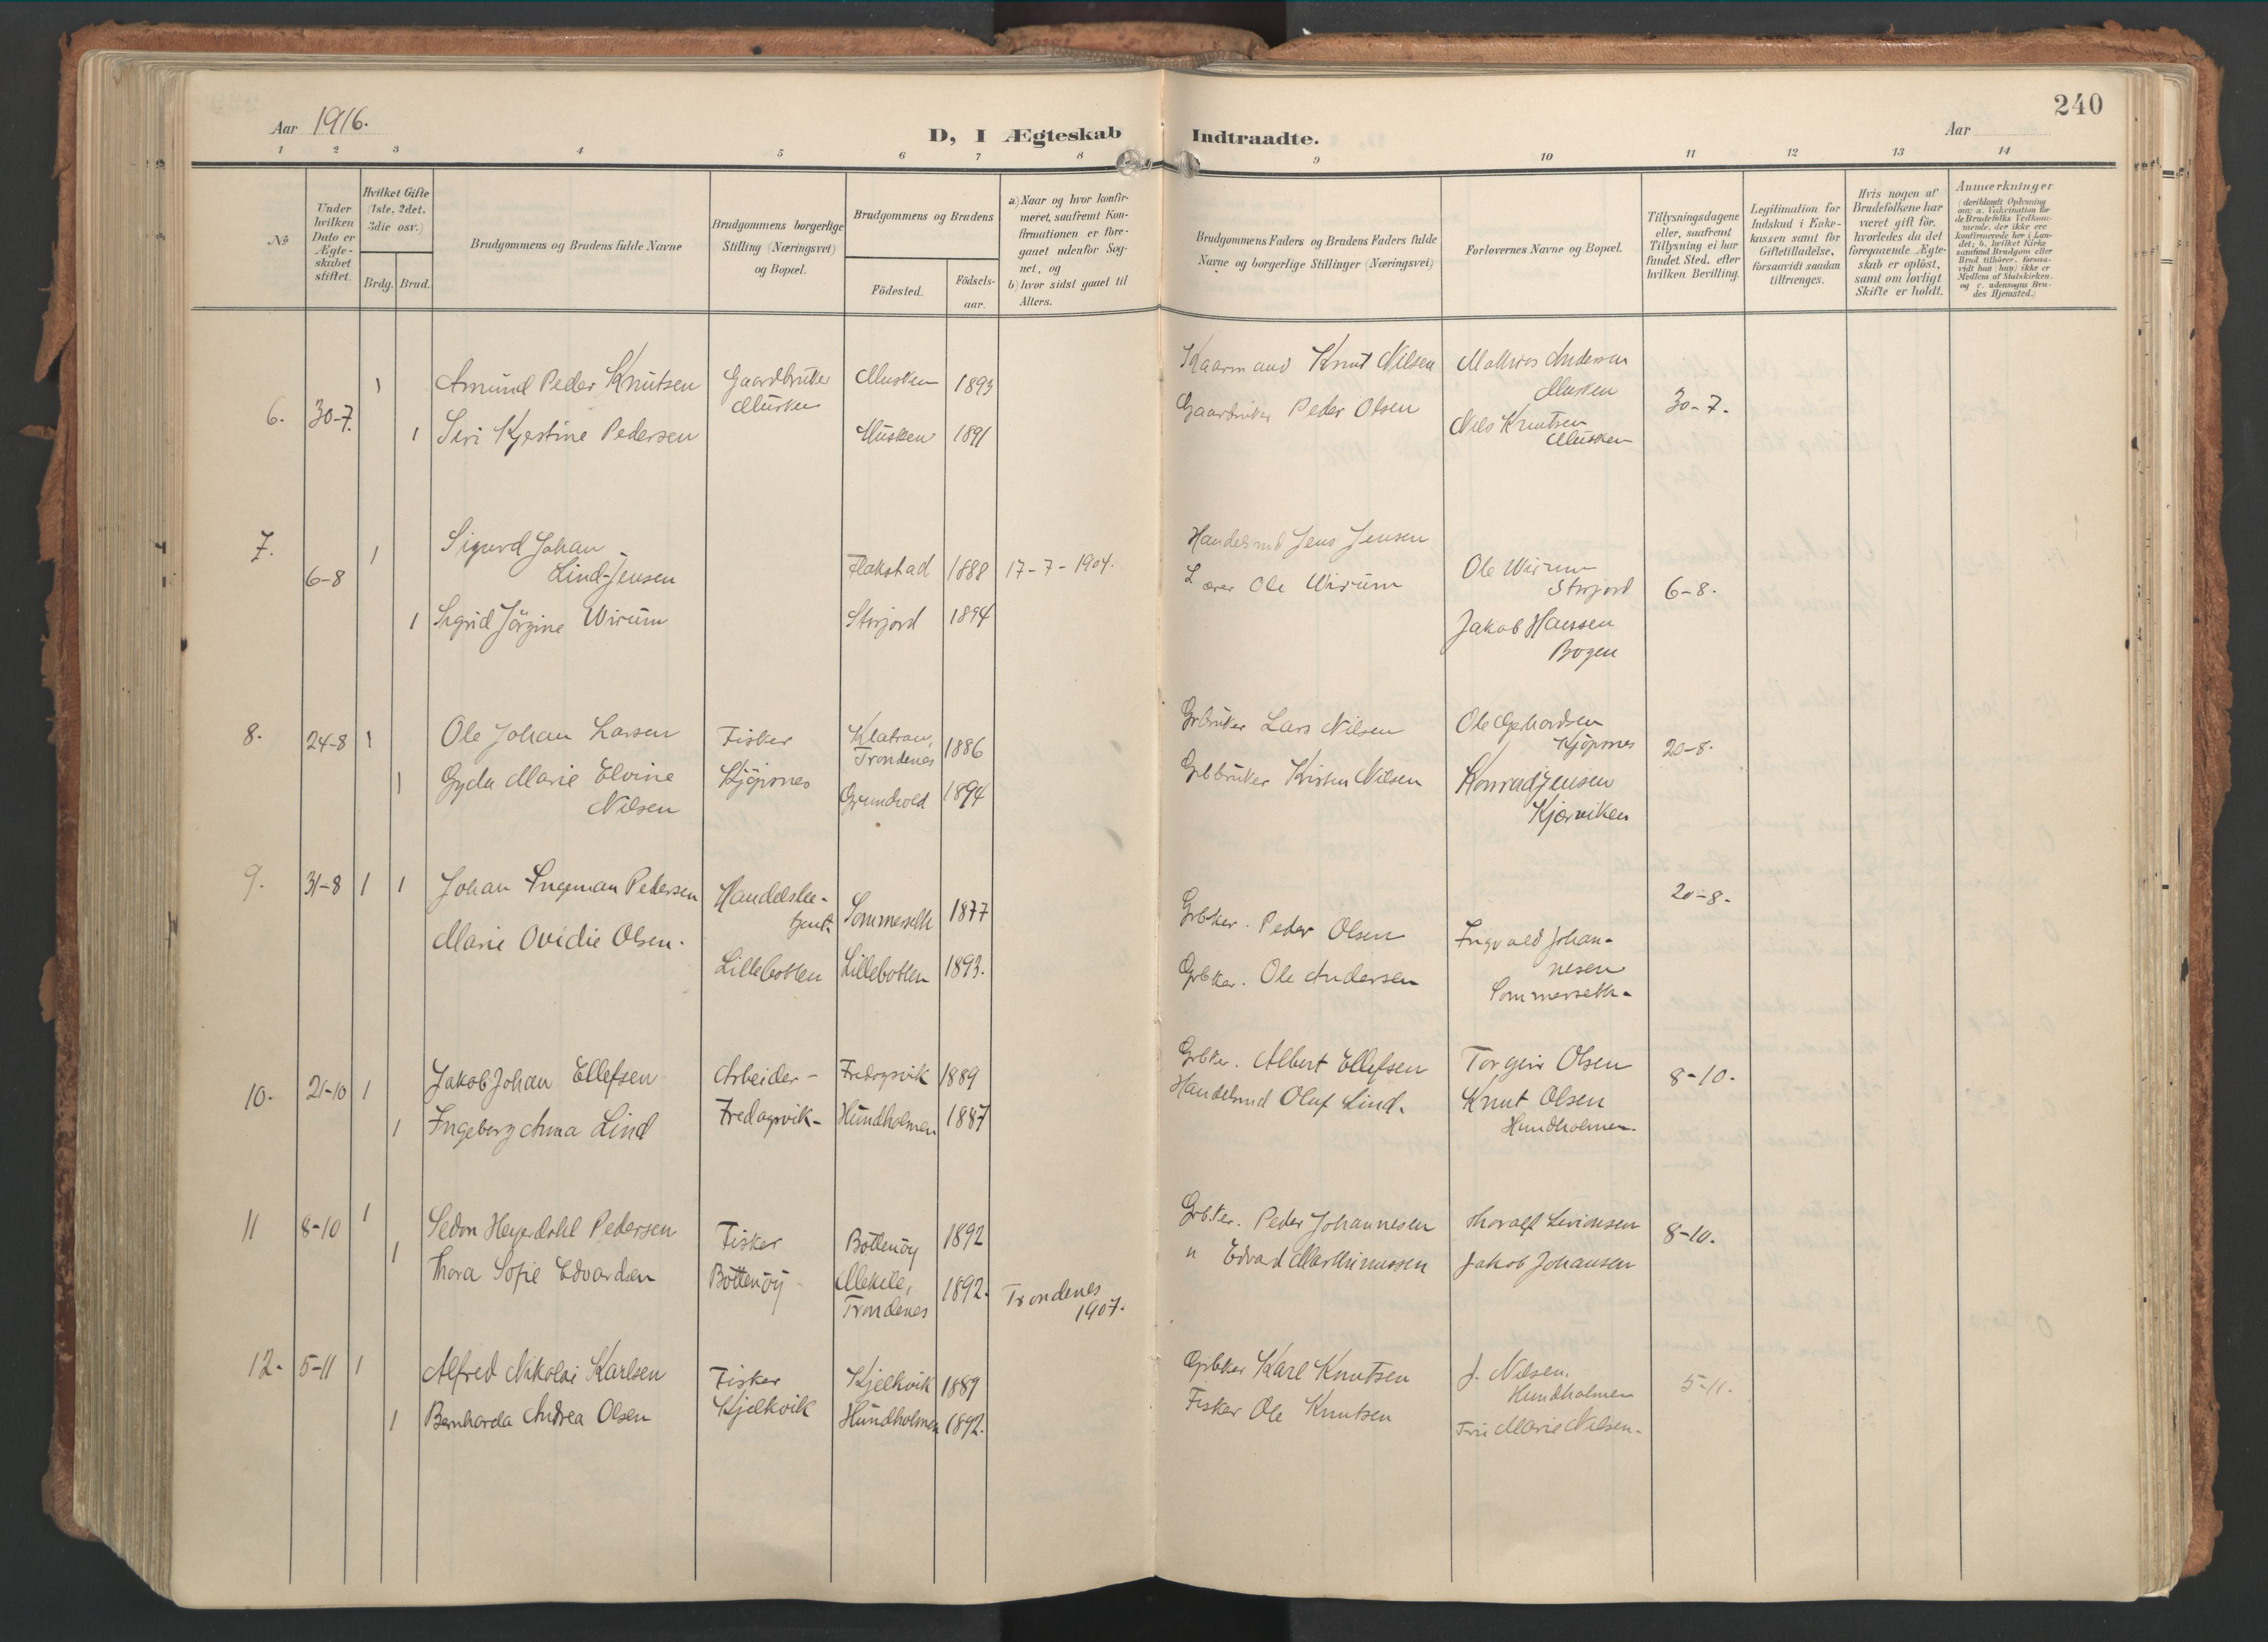 240
Aar 1916.
D, I Ægteskab Indtraadte.
Aar
1 2 3 4 5 6 7 8 9 10 11 12 13 14
№
Under hvilken Dato er Ægte-skabet stiftet.
Hvilket Gifte (1ste, 2det, 3die osv.)
Brdg. Brud.
Brudgommens og Brudens fulde Navne
Brudgommens borgerlige Stilling (Næringsvei) og Bopæl.
Brudgommens og Brudens
Födested.
Födsels-aar.
a) Naar og hvor konfir-meret, saafremt Kon-firmationen er fore-gaaet udenfor Sog-net, og
b) hvor sidst gaaet til Alters.
Brudgommens Faders og Brudens Faders fulde Navne og borgerlige Stillinger (Næringsvei)
Forlovernes Navne og Bopæl.
Tillysningsdagene eller, saafremt Tillysning ei har fundet Sted, efter hvilken Bevilling.
Legitimation for Indskud i Enke-kassen samt for Giftetilladelse, forsaavidt saadan tiltrænges.
Hvis nogen af Brudefolkene har været gift för, hvorledes da det foregaaende Ægte-skab er oplöst, samt om lovligt Skifte er holdt.
Anmærkninger
(deriblandt Oplysning om: a. Vakcination for de Brudefolks Vedkom-mende, der ikke ere konfirmerede her i Lan-det; b. hvilket Kirke-samfund Brudgom eller Brud tilhörer, forsaa-vidt han (hun) ikke er Medlem af Statskirken, og c. udensogns Bru-des Hjemsted.)
6. 30-7. 1 Amund Peder Knutsen Gaardbruker Musken Musken 1893 Kaarmand Knut Nilsen Mathias Andersen Musken 30-7.
1 Siri Kjestine Pedersen Musken 1891 Gaardbruker Peder Olsen Nils Knutsen Musken
7. 6-8 1 Sigurd Johan Lind-Jensen Flakstad 1888 17-7-1904. Handelsmd Jens Jensen Ole Wirum Storjord 6-8.
1 Sigrid Jörgine Wirum Storjord 1894 Lærer Ole Wirum Jakob Hanssen Bogen
8. 24-8 1 Ole Johan Larsen Fisker Klatran, Trondenes 1886 Grbruker Lars Nilsen Ole Gerhardsen Kjöpsnes 20-8.
1 Gyda Marie Elvine Nilsen Kjöpsnes Grundvold 1894 Grbruker Kristen Nilsen Konrad Jensen Kjærviken
9. 31-8 1 1 Johan Ingeman Pedersen Handelsbe-tjent. Sommerseth 1877 Grbker. Peder Olsen Ingvald Johan-nesen Sommerseth- 20-8.
Marie Ovidie Olsen. Lillebotten Lillebotten 1893. Grbker. Ole Andersen
10. 21-10 1 Jakob Johan Ellefsen Arbeider- Fredagsvik 1889 Grbker. Albert Ellefsen Torgeir Olsen 8-10.
1 Ingeborg Anna Lind Fredagsvik- Hundholmen 1887 Handelsmd Oluf Lind. Knut Olsen Hundholmen.
11 8-10 1 Sedon Heyerdahl Pedersen Fisker Bottenöy 1892 Grbker. Peder Johannesen Thoralf Levionsen 8-10.
1 Thora Sofie Edvardsen Bottenöy- Melkile, Trondenes 1892. Trondenes 1907. " Edvard Marthinussen Jakob Johansen
12. 5-11 1 Alfred Nikolai Karlsen Fisker Kjelkvik 1889 Grbker Karl Knutsen J. Nilsen, Hundholmen 5-11.
1 Bernharda Andrea Olsen Kjelkvik Hundholmen 1892. Fisker Ole Knutsen Fru Marie Nilsen-